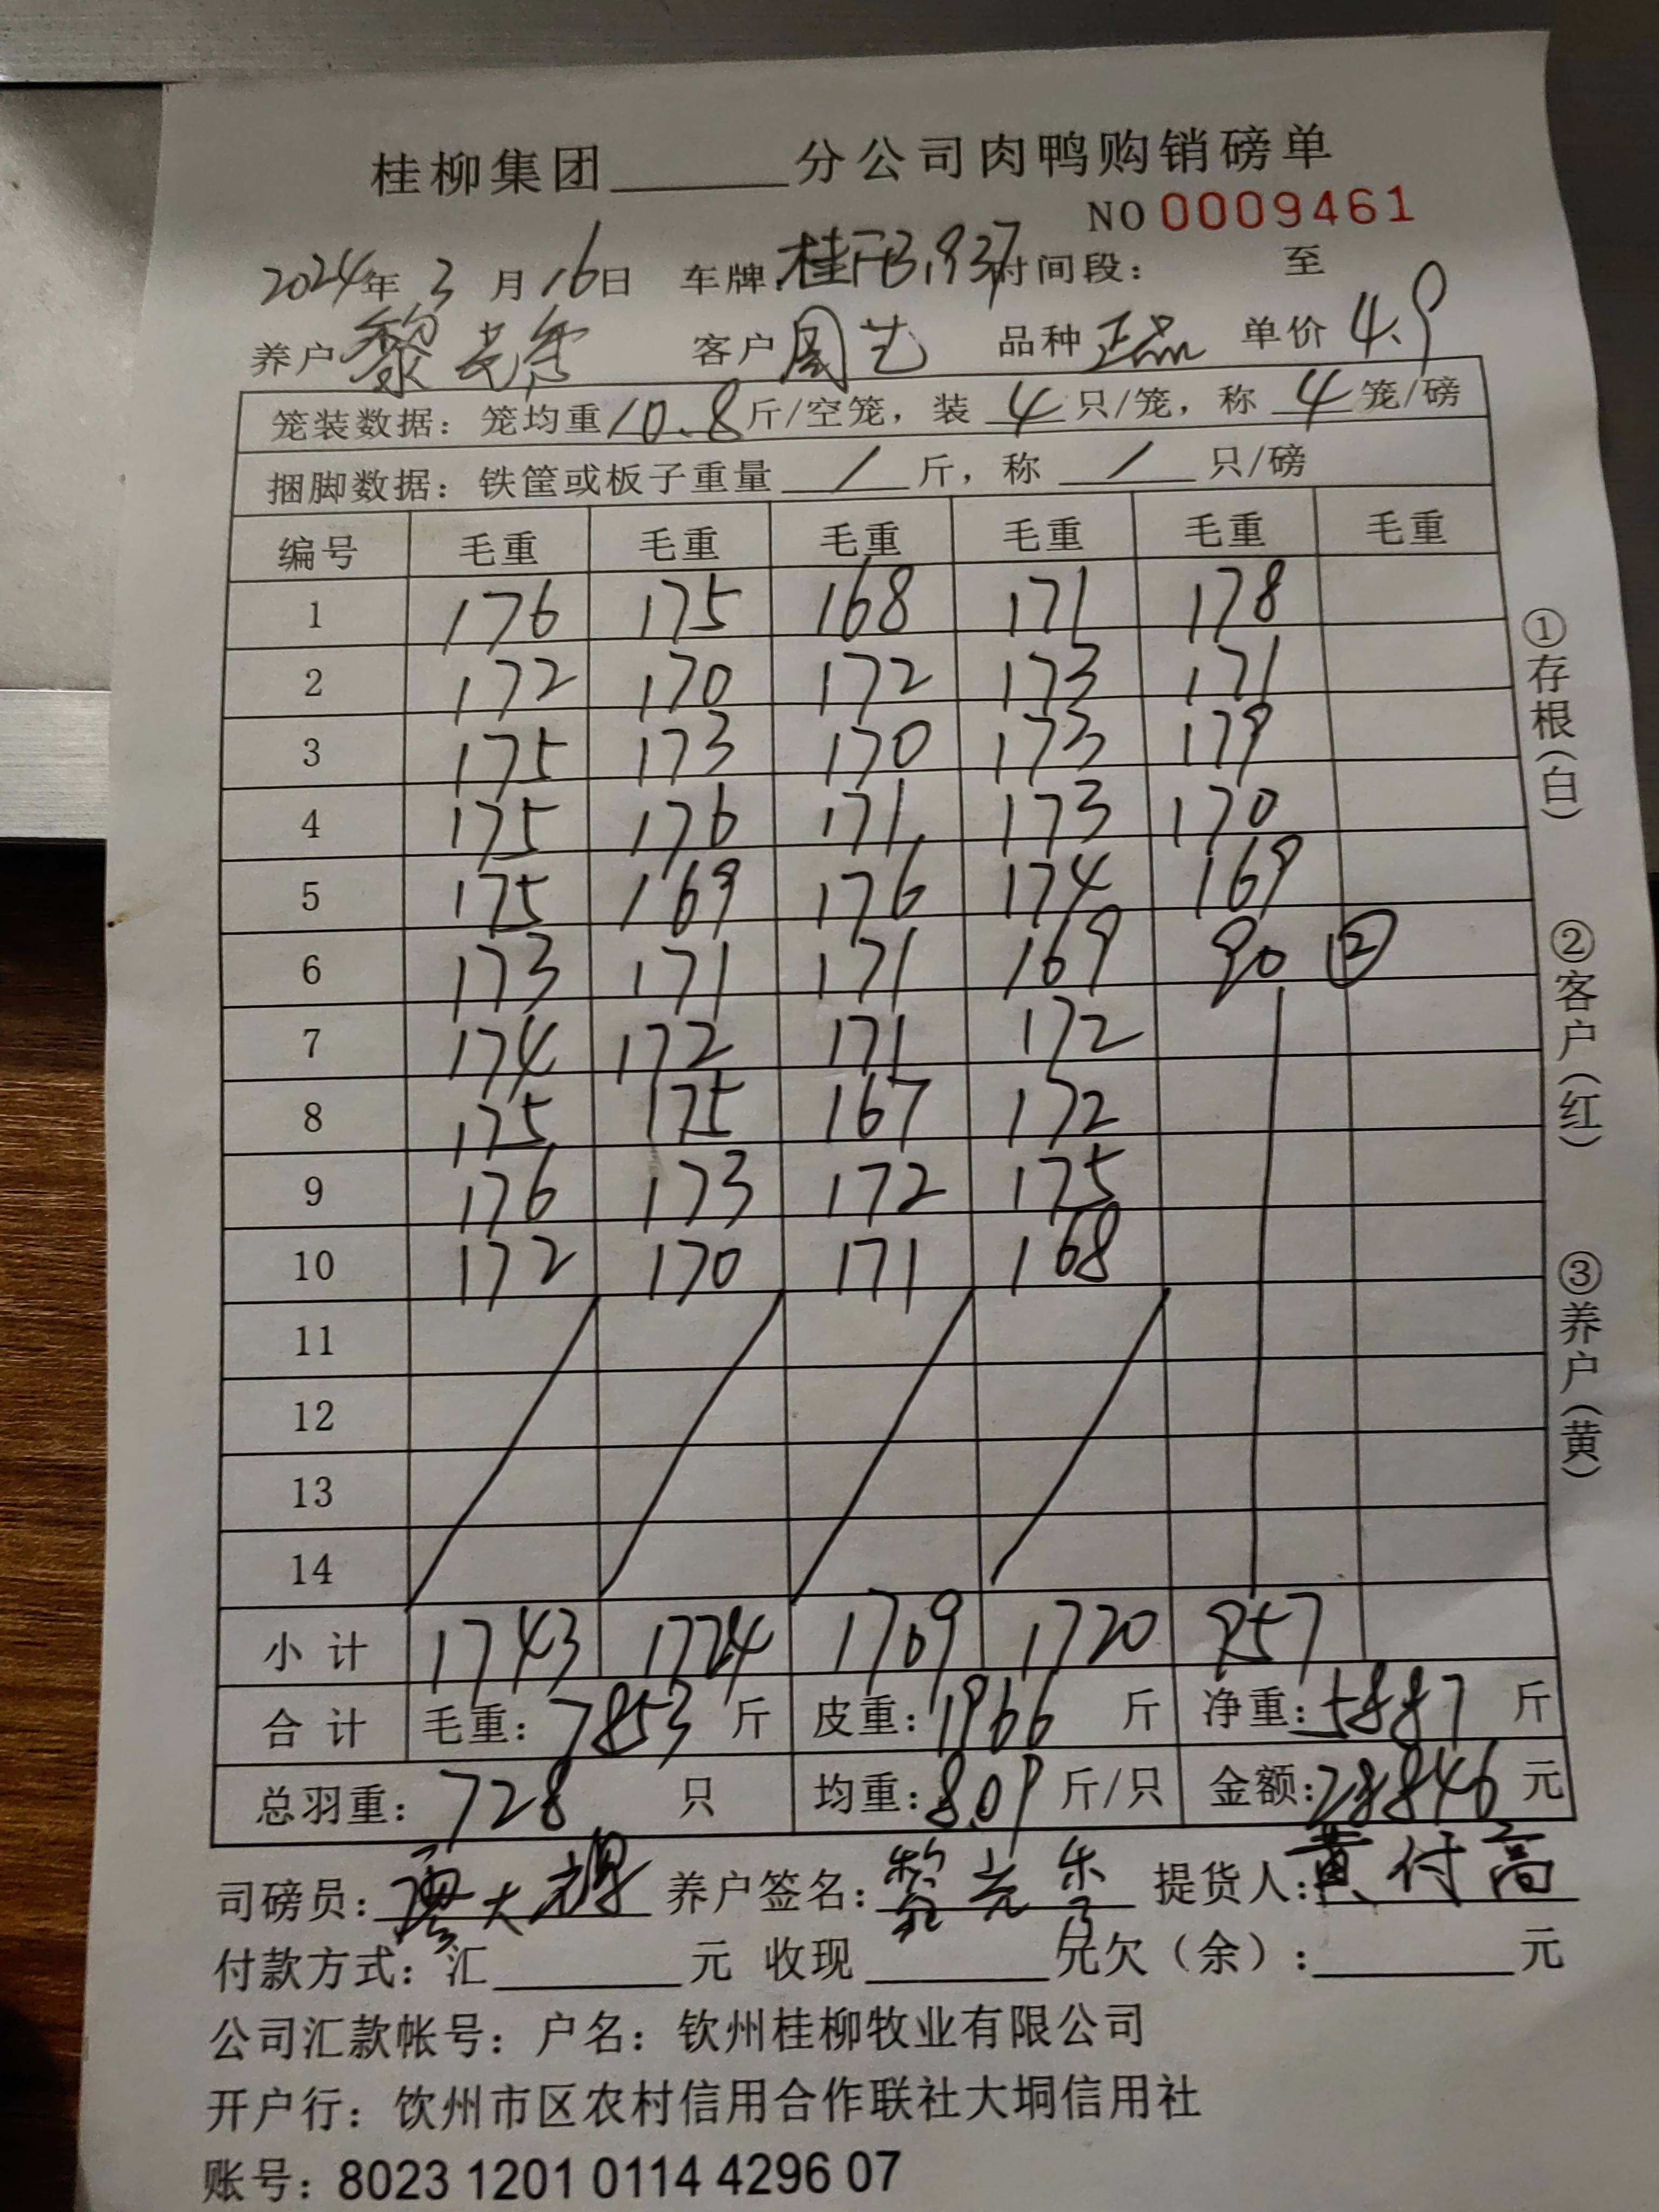 桂柳集团______分公司肉鸭购销磅单
NO 0009461
2024年 3 月 16日 车牌: 桂 时间段: 至
养户 黎 客户 周艺 品种 正品 单价 4.9
笼装数据: 笼均重 10.8 斤/空笼, 装 4 只/笼, 称 4 笼/磅
捆脚数据: 铁筐或板子重量 / 斤, 称 / 只/磅
编号 毛重 毛重 毛重 毛重 毛重 毛重
1 176 175 168 171 178
2 172 170 172 173 171
3 175 173 170 173 179
4 175 176 171 173 170
5 175 169 176 174 169
6 173 171 171 169 90 ②
7 174 172 171 172
8 175 175 167 172
9 176 173 172 175
10 172 170 171 168
11
12
13
14
小计 1743 1724 1709 1720 957
合计 毛重: 7853 斤 皮重: 1966 斤 净重: 5887 斤
总羽重: 728 只 均重: 8.09 斤/只 金额: 28846 元
司磅员: 养户签名: 黎 提货人: 黄付高
付款方式: 汇______元 收现______元欠(余):______元
公司汇款帐号: 户名: 钦州桂柳牧业有限公司
开户行: 钦州市区农村信用合作联社大垌信用社
账号: 8023 1201 0114 4296 07
①存根(白)
②客户(红)
③养户(黄)